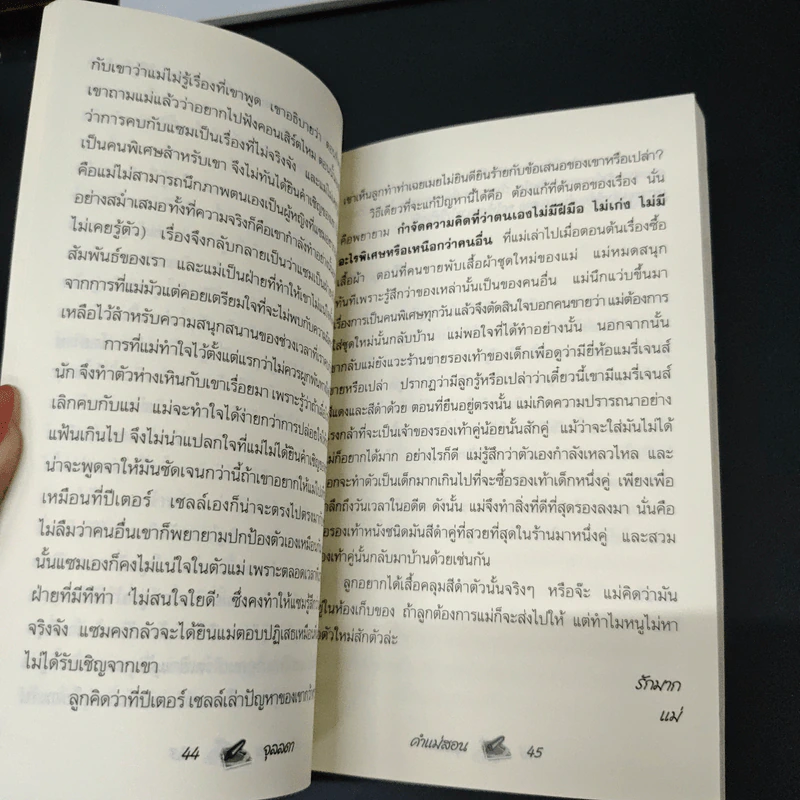 กับเขาว่าแม่ไม่รู้เรื่องที่เขาพูด เขาอธิบายว่า
เขาถามแม่แล้วว่าอยากไปฟังคอนเสิร์ตไหม
ว่าการคบกับแซมเป็นเรื่องที่ไม่จริงจัง
เป็นคนพิเศษสำหรับเขา จึงไม่ทันได้ยินคำเชิญ
คือแม่ไม่สามารถนึกภาพตนเองเป็นผู้หญิงที่แซม
อย่างสม่ำเสมอทั้งที่ความจริงก็คือเขากำลังทำอย่าง
ไม่เคยรู้ตัว) เรื่องจึงกลับกลายเป็นว่าแซมเป็นฝ่าย
สัมพันธ์ของเรา และแม่เป็นฝ่ายที่ทำให้เขาไม่
จากการที่แม่มัวแต่คอยเตรียมใจที่จะไม่พบกับความ
เหลือไว้สำหรับความสนุกสนานของช่วงเวลาที่เรา
การที่แม่ทำใจไว้ตั้งแต่แรกว่าไม่ควรผูกพัน
นัก จึงทำตัวห่างเหินกับเขาเรื่อยมา เพราะรู้ว่าถ้า
เลิกคบกับแม่ แม่จะทำใจได้ง่ายกว่าการปล่อย
แฟ้นเกินไป จึงไม่น่าแปลกใจที่แม่ไม่ได้ยินคำเชิญ
น่าจะพูดจาให้มันชัดเจนกว่านี้ถ้าเขาอยากให้แม่ไป
เหมือนที่ปีเตอร์ เชลล์เองก็น่าจะตรงไปตรงมา
ไม่ลืมว่าคนอื่นเขาก็พยายามปกป้องตัวเองเหมือน
นั้นแซมเองก็คงไม่แน่ใจในตัวแม่ เพราะตลอดเวลา
ฝ่ายที่มีทีท่า ‘ไม่สนใจใยดี’ ซึ่งคงทำให้แซมรู้สึก
จริงจัง แซมคงกลัวจะได้ยินแม่ตอบปฏิเสธเหมือน
ไม่ได้รับเชิญจากเขา
ลูกคิดว่าที่ปีเตอร์ เชลล์เล่าปัญหาของเขา
44 จุลลดา
เขาเห็นลูกทำท่าเฉยเมยไม่ยินดียินร้ายกับข้อเสนอของเขาหรือเปล่า?
วิธีเดียวที่จะแก้ปัญหานี้ได้คือ ต้องแก้ที่ต้นตอของเรื่อง นั่น
คือพยายาม กำจัดความคิดที่ว่าตนเองไม่มีฝีมือ ไม่เก่ง ไม่มี
อะไรพิเศษหรือเหนือกว่าคนอื่น ที่แม่เล่าไปเมื่อตอนต้นเรื่องซื้อ
เสื้อผ้า ตอนที่คนขายพับเสื้อผ้าชุดใหม่ของแม่ แม่หมดสนุก
ทันทีเพราะรู้สึกว่าของเหล่านั้นเป็นของคนอื่น แม่นึกแว่บขึ้นมา
เรื่องการเป็นคนพิเศษทุกวัน แล้วจึงตัดสินใจบอกคนขายว่า แม่ต้องการ
ใส่ชุดใหม่นั้นกลับบ้าน แม่พอใจที่ได้ทำอย่างนั้น นอกจากนั้น
ขากลับแม่ยังแวะร้านขายรองเท้าของเด็กเพื่อดูว่ามียี่ห้อแมรี่เจนส์
ขายหรือเปล่า ปรากฏว่ามีลูกรู้หรือเปล่าว่าเดี๋ยวนี้เขามีแมรี่เจนส์
สีแดงและสีดำด้วย ตอนที่ยืนอยู่ตรงนั้น แม่เกิดความปรารถนาอย่าง
แรงกล้าที่จะเป็นเจ้าของรองเท้าคู่น้อยนั้นสักคู่ แม้ว่าจะใส่มันไม่ได้
ก็อยากได้มาก อย่างไรก็ดี แม่รู้สึกว่าตัวเองกำลังเหลวไหล และ
ออกจะทำตัวเป็นเด็กมากเกินไปที่จะซื้อรองเท้าเด็กหนึ่งคู่ เพียงเพื่อ
ลึกถึงวันเวลาในอดีต ดังนั้น แม่จึงทำสิ่งที่ดีที่สุดรองลงมา นั่นคือ
รองเท้าหนังชนิดมันสีดำคู่ที่สวยที่สุดในร้านมาหนึ่งคู่ และสวม
เท้าคู่นั้นกลับมาบ้านด้วยเช่นกัน
ลูกอยากได้เสื้อคลุมสีดำตัวนั้นจริงๆ หรือจ๊ะ แม่คิดว่ามัน
ในห้องเก็บของ ถ้าลูกต้องการแม่ก็จะส่งไปให้ แต่ทำไมหนูไม่หา
ตัวใหม่สักตัวล่ะ
รักมาก
แม่
คำแม่สอน 45